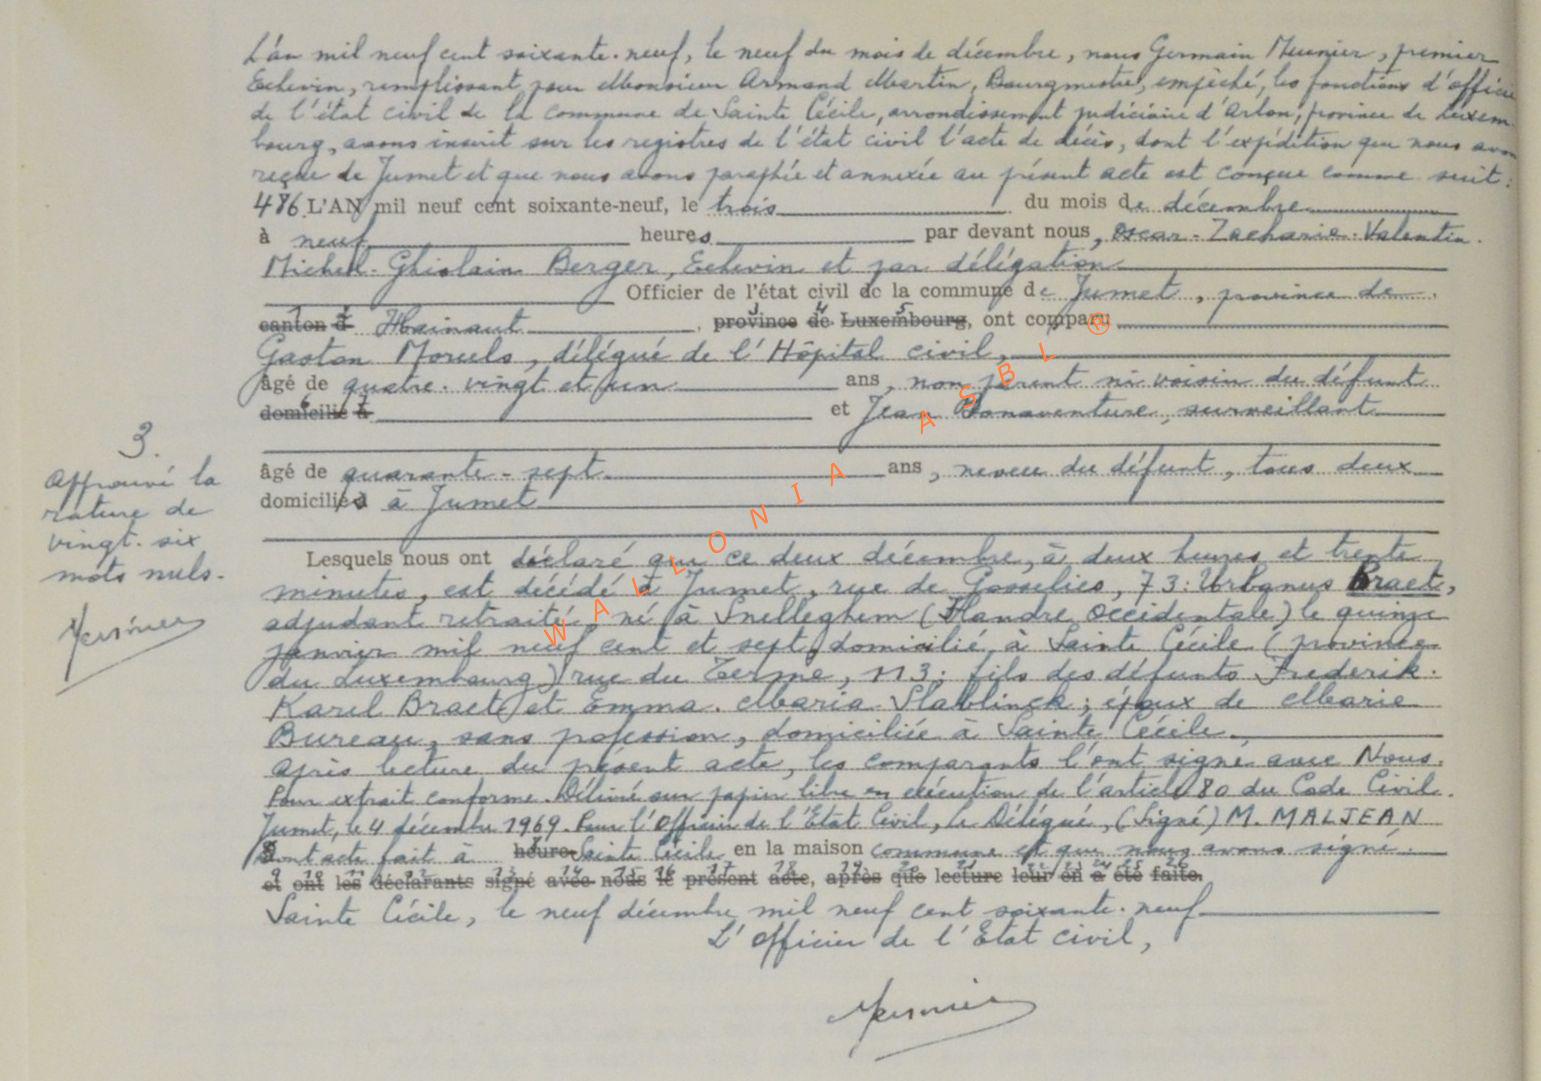 L'an mil neuf cent soixante-neuf, le neuf du mois de décembre, nous Germain Meunier, premier
Echevin, remplissant pour Monsieur Armand Martin, Bourgmestre, empêché, les fonctions d'officier
de l'état civil de la commune de Sainte Cécile, arrondissement judiciaire d'Arlon, province de Luxem-
bourg, avons inscrit sur les registres de l'état civil l'acte de décès, dont l'expédition que nous avons
reçue de Jumet et que nous avons paraphée et annexée au présent acte est conçue comme suit :
486. L'AN mil neuf cent soixante-neuf, le trois du mois de décembre
à neuf heures par devant nous, Oscar-Zacharie-Valentin-
Michel-Ghislain Berger, Echevin et par délégation
Officier de l'état civil de la commune de Jumet, province de
canton d Hainaut, province de Luxembourg, ont comparu
Gaston Morsels, délégué de l'Hôpital civil,
âgé de quatre-vingt et un ans, non parent ni voisin du défunt
domicilié à et Jean Bonaventure, surveillant
âgé de quarante-sept ans, neveu du défunt, tous deux
domiciliés à Jumet
3.
Approuvé la
rature de
vingt-six
mots nuls.
Lesquels nous ont déclaré que ce deux décembre, à deux heures et trente
minutes, est décédé à Jumet, rue de Gosselies, 73: Urbanus Braet,
adjudant retraité, né à Snelleghem (Flandre Occidentale) le quinze
janvier mil neuf cent et sept, domicilié à Sainte Cécile (province
du Luxembourg) rue du Terme, n 3; fils des défunts Frederik-
Karel Braet et Emma-Maria Slablinck; époux de Marie
Bureau, sans profession, domiciliée à Sainte Cécile.
Après lecture du présent acte, les comparants l'ont signé avec Nous.
Pour extrait conforme. Délivré sur papier libre en exécution de l'article 80 du Code Civil.
Jumet, le 4 décembre 1969. Pour l'Officier de l'Etat Civil, le Délégué, (Signé) M. MALJEAN
Dont acte fait à heure Sainte Cécile en la maison commune et que nous avons signé.
et ont les déclarants signé avec nous le présent acte, après que lecture leur en a été faite.
Sainte Cécile, le neuf décembre mil neuf cent soixante-neuf
L'Officier de l'Etat civil,
WALLONIA ASBL ®